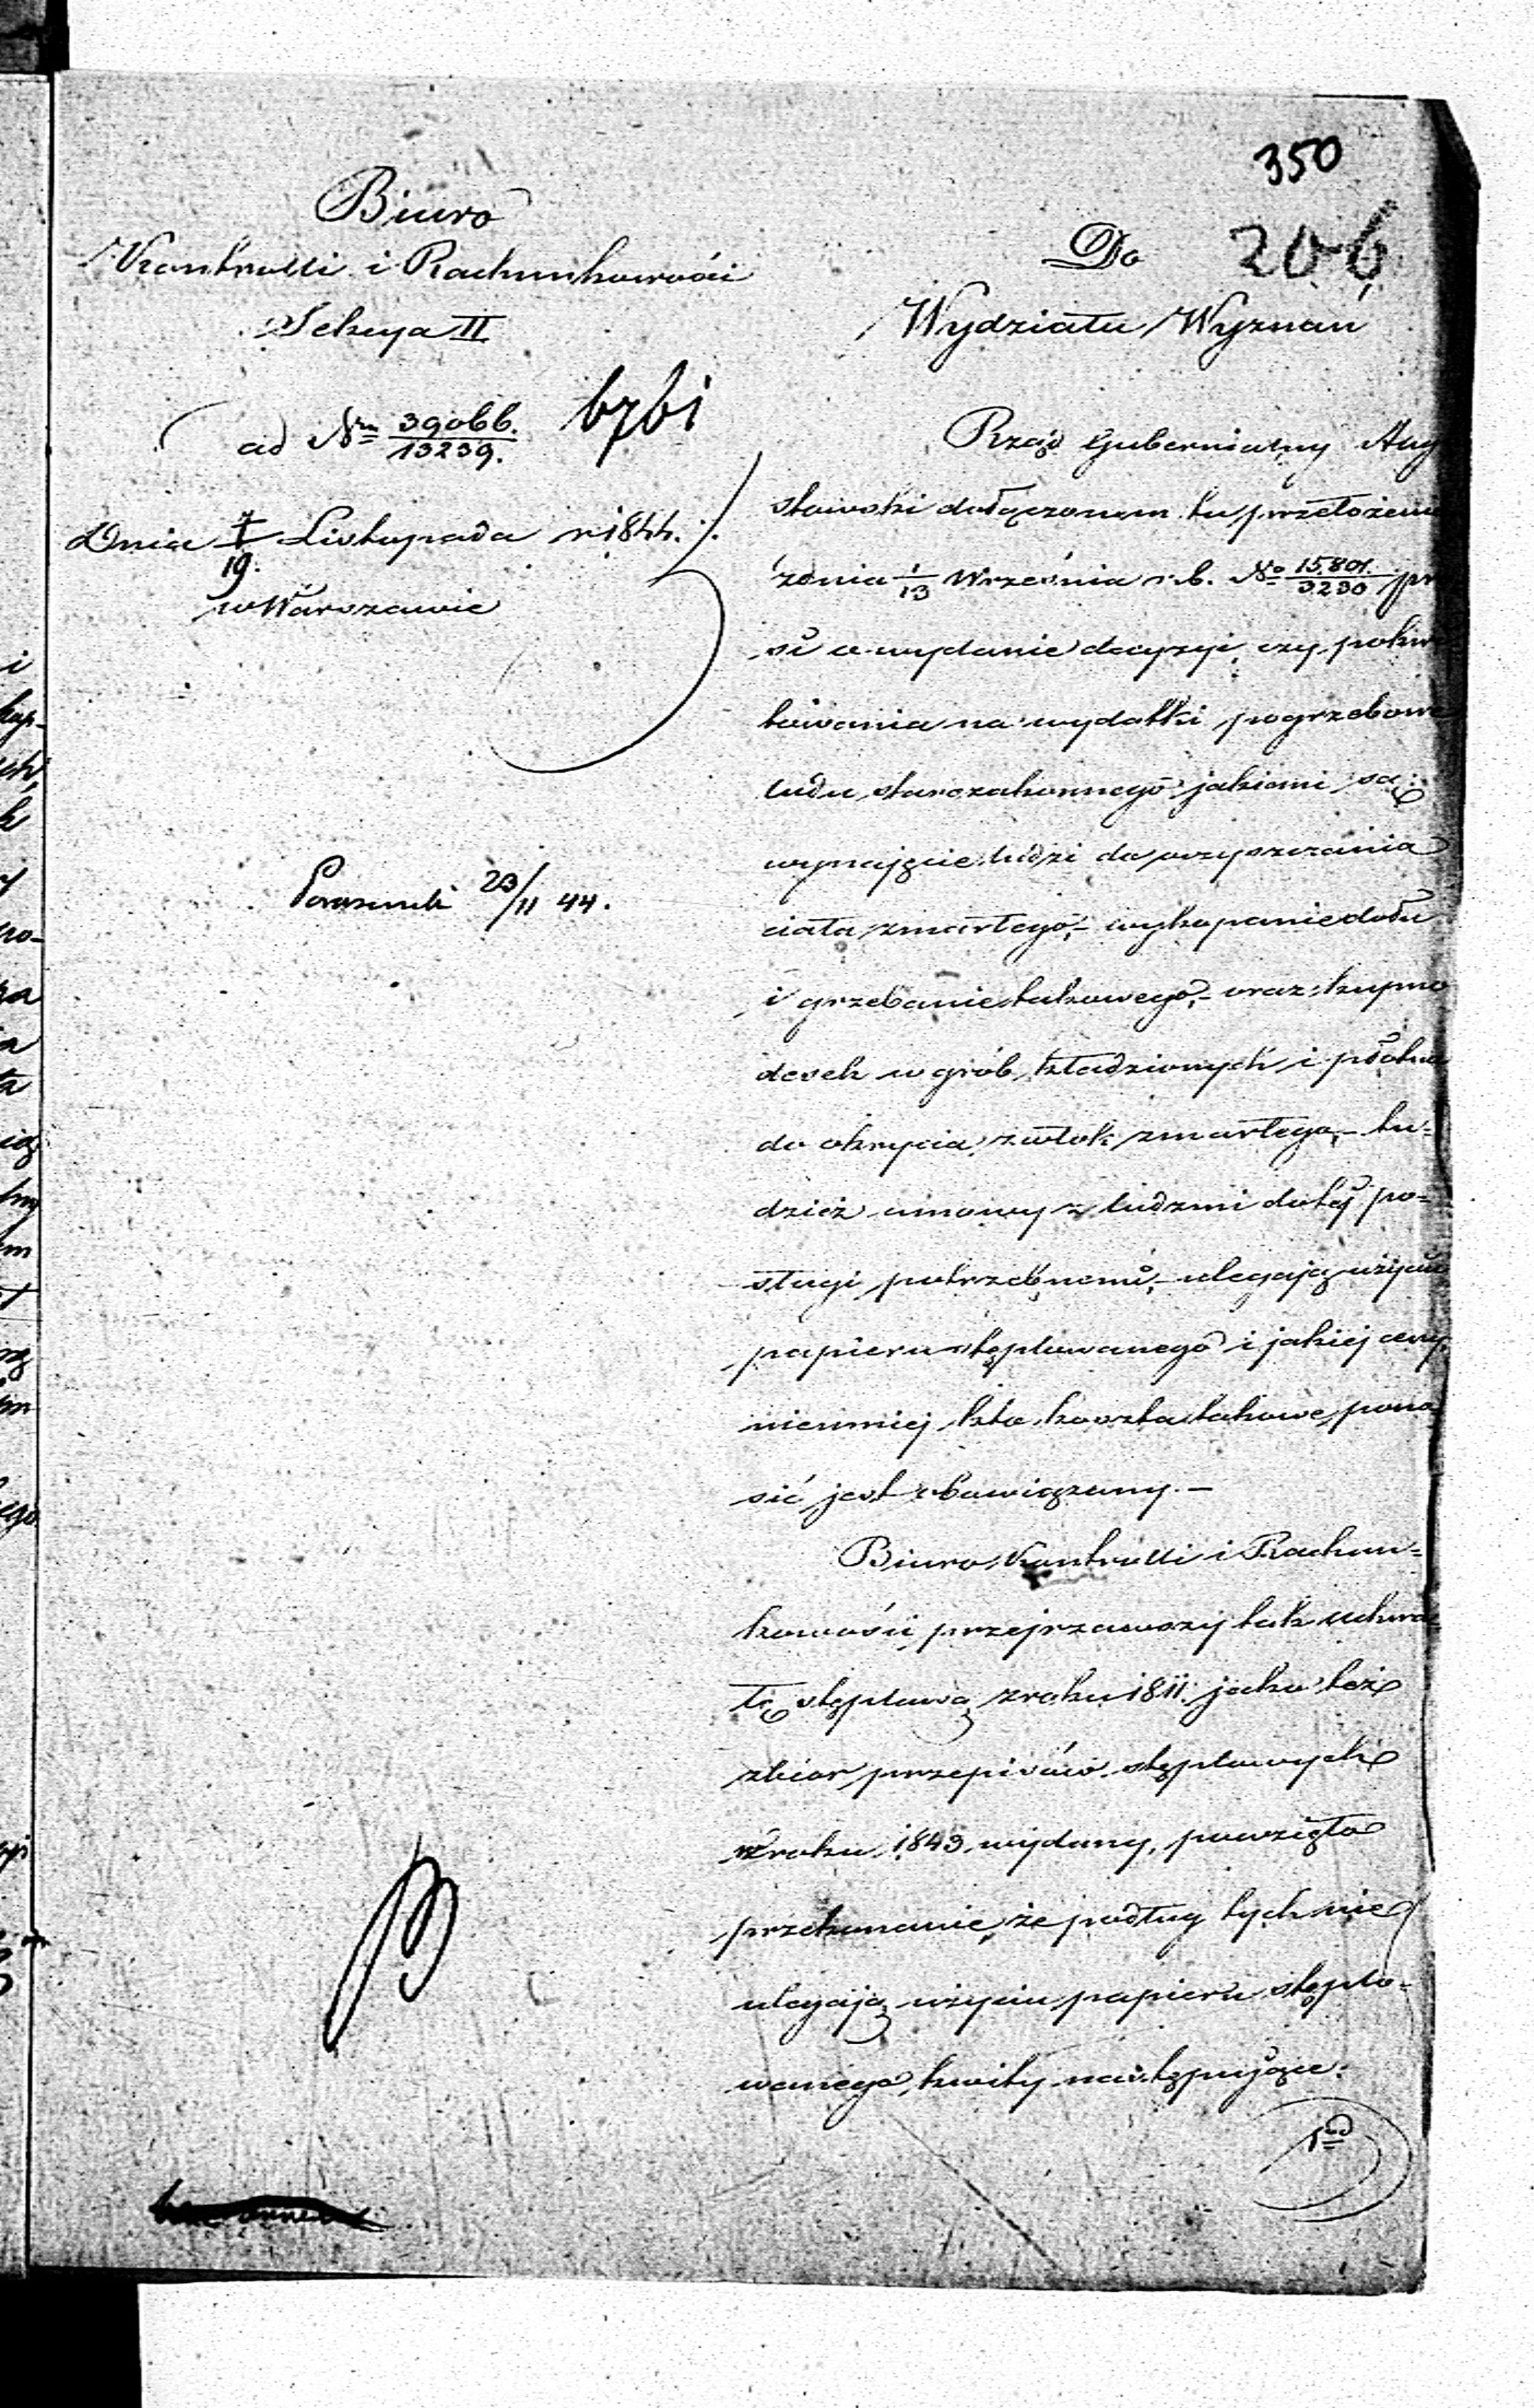 350
206
Biuro
Kontrolli i Rachunkowości
Sekcya II
ad Nrm 39066./13239.
6761
Dnia 7/19. Listopada r 1844.
w Warszawie
23/11 44.
Do
Wydziału Wyznań
Rząd Gubernialny Aug
stowski dołączonem tu przełożeni
z dnia 1/13 Września r. b. No 15,801./3230 pr
si o wydanie decyzyi, czy pokwi
towania na wydatki pogrzebowe
ludu starozakonnego jakiemi są:
wynajęcie ludzi do oczyszczania
ciała zmarłego,- wykopanie dołu
i grzebanie takowego,- oraz kupno
desek w grób kładzionych i płótna
do okrycia zwłok zmarłego,- tu=
dzież umowy z ludźmi do tej po=
sługi potrzebnemi,- ulegają użyciu
papieru stęplowanego i jakiej ceny,
niemniej kto koszta takowe pono
sić jest obowiązany.-
Biuro Kontrolli i Rachun=
kowości przejrzawszy tak uchwa=
łę stęplową z roku 1811. jako też
zbior przepisów stęplowych
w roku 1843 wydany, powzięło
przekonanie, że podług tych nie
ulegają użyciu papieru stęplo=
wanego, kwity następujące:
1od